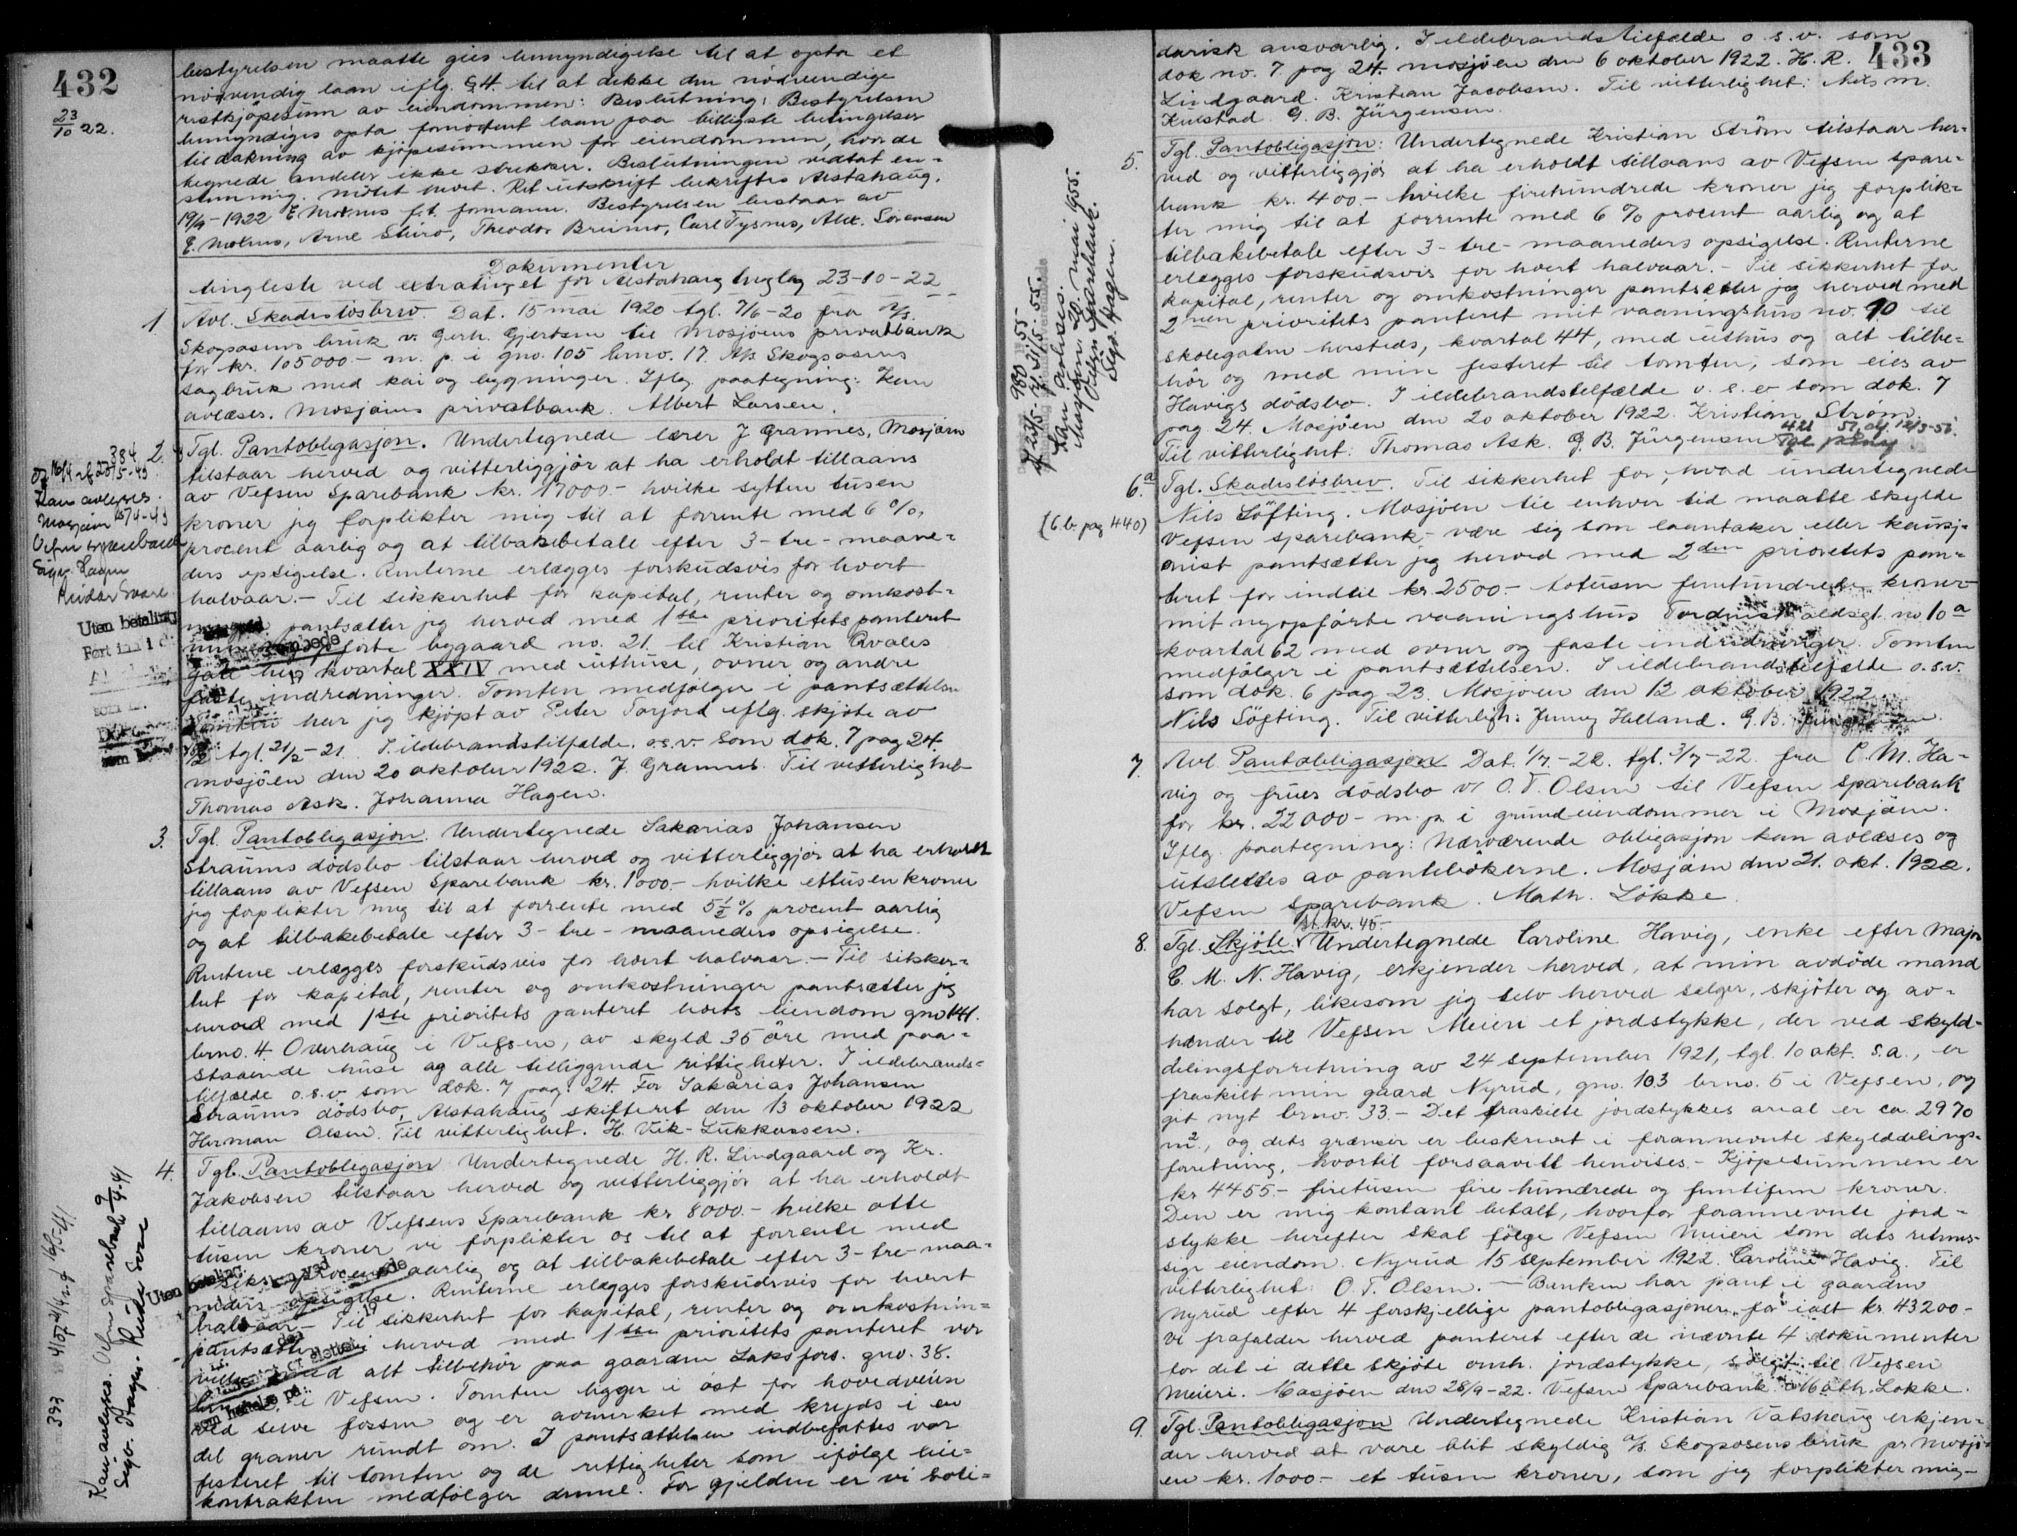 432
23/10 22.
bestyrelsen maatte gies bemyndigelse til at opta et
nødvendig laan iflg. §4. til at dekke den nødvendige
restkjøpesum av eiendommen: Beslutning: Bestyrelsen
bemyndiges opta fornødent laan paa billigste betingelser
til dækning av kjøpesummen for eiendommen, hvor de
tegnede andeler ikke strekker. Beslutningen vedtat en-
stemmig. Møtet hævet. Ret utskrift bekræftes Alstahaug.
19/9-1922 E Molnes f.t. formann. Bestyrelsen bestaar av
E. Molnes, Arne Stiro, Theodor Breimo, Carl Fysnes, Alex. Sørensen
Dokumenter
tingleste ved extratinget for Alstahaug tinglag 23-10-22
1 Avl. Skadesløsbrev. Dat. 15 mai 1920 tgl. 7/6-20 fra A/S.
Skogåsens bruk v. Gerh. Gjertsen til Mosjøens privatbank
for kr. 105000.- m. p. i gno. 105 brno. 17. A/S Skogåsens
sagbruk med kai og bygninger. Iflg. paategning: Kan
avlæses. Mosjøens privatbank. Albert Larsen.
2. Tgl. Pantobligasjon. Undertegnede lærer J Grannes, Mosjøen
tilstaar herved og vitterliggjør at ha erholdt tillaans
av Vefsen Sparebank kr. 17000.- hvilke sytten tusen
kroner jeg forplikter mig til at forrente med 6 %
procent aarlig og at tilbakebetale efter 3-tre-maane-
ders opsigelse. Renterne erlægges forskudsvis for hvert
halvaar.- Til sikkerhet for kapital, renter og omkost-
pantsætter jeg herved med 1ste prioritets panteret
bygaard no. 21. til Kristian Qvales
gate her kvartal XXIV med uthuse, ovner og andre
faste indredninger. Tomten medfølger i pantsættelsen
Tomten har jeg kjøpt av Peter Torjord iflg. skjøte av
tgl. 21/2-21. I ildebrandstilfælde. o.s.v. som dok. 7 pag 24.
mosjøen den 20 oktober 1922. J. Grannes. Til vitterlighet
Thomas Ask. Johanna Hagen.
3. Tgl. Pantobligasjon. Undertegnede Sakarias Johansen
Straums dødsbo tilstaar herved og vitterliggjør at ha erholdt
tillaans av Vefsen Sparebank kr. 1000.- hvilke ettusen kroner
jeg forplikter mig til at forrente med 5 1/2 % procent aarlig
og at tilbakebetale efter 3-tre-maaneders opsigelse.
Renterne erlægges forskudsvis for hvert halvaar.- Til sikker-
het for kapital, renter og omkostninger pantsætter jeg
herved med 1ste prioritets panteret boets eiendom gno 141.
brno. 4 Overhaug i Vefsen, av skyld 35 øre med paa-
staaende huse og alle tilliggende rettigheter. I ildebrands-
tilfælde o.s.v. som dok. 7 pag. 24. For Sakarias Johansen
Straums dødsbo, Alstahaug skifteret den 13 oktober 1922
Herman Olsen. Til vitterlighet. H. Vik-Lukkassen.
4. Tgl. Pantobligasjon Undertegnede H. R. Lindgaard og Kr.
Jakobsen tilstaar herved og vitterliggjør at ha erholdt
tillaans av Vefsens Sparebank kr 8000.- hvilke otte
tusen kroner vi forplikter os til at forrente med
seks procent aarlig og at tilbakebetale efter 3-tre-maa-
neders opsigelse. Renterne erlægges forskudsvis for hvert
halvaar.- Til sikkerhet for kapital, renter og omkostnin-
pantsætter vi herved med 1ste prioritets panteret vor
villa med alt tilbehør paa gaarden Laksfors. gno. 38.
i Vefsen. Tomten ligger i øst for hovedveien
ved selve fossen og er avmerket med kryds i en
del graner rundt om. I pantsættelsen indbefattes vor
festeret til tomten og de rettigheter som ifølge leie-
kontrakten medfølger denne. For gjelden er vi soli-
384
Kan avlyses.
Mosjøen 15/4-43
Vefsn sparebank
Sigv. Hagen
Reidar Svare
Uten betaling
Ført inn i d
som
Kan avlyses. Vefsn sparebank 9/4-41
Sigv. Hagen. Reidar Svare
393
Uten betaling
433
darisk ansvarlig. I ildebrandstilfælde o.s.v. som
dok no. 7 pag 24. mosjøen den 6 oktober 1922. H. R.
Lindgaard. Kristian Jacobsen. Til vitterlighet: Nils M.
Kulstad. G. B. Jürgensen
5. Tgl. Pantobligasjon: Undertegnede Kristian Strøm tilstaar her-
ved og vitterliggjør at ha erholdt tillaans av Vefsen spare-
bank kr. 400.- hvilke firehundrede kroner jeg forplik-
ter mig til at forrente med 6 % procent aarlig og at
tilbakebetale efter 3-tre-maaneders opsigelse. Renterne
erlægges forskudsvis for hvert halvaar.- Til sikkerhet for
kapital, renter og omkostninger pantsætter jeg herved med
2nen prioritets panteret mit vaaningshus no. 10 til
skolegaten hersteds, kvartal 44, med uthus og alt tilbe-
hør og med min festeret til tomten, som eies av
Havigs dødsbo. I ildebrandstilfælde o.s.v som dok. 7
pag 24. Mosjøen den 20 oktober 1922. Kristian Strøm
Til vitterlighet: Thomas Ask. G. B. Jürgensen
6.a Tgl. Skadesløsbrev. Til sikkerhet for, hvad undertegnede
Nils Løfting. Mosjøen til enhver tid maatte skylde
Vefsen sparebank - være sig som laantaker eller kausj-
onist pantsætter jeg herved med 2den prioritets pan-
teret for indtil kr 2500.- totusen femhundrede kroner
mit nyopførte vaaningshus Tordenskjoldsgt. no 10a
kvartal 62 med ovner og faste indredninger. Tomten
medfølger i pantsættelsen. I ildebrandstilfælde o.s.v.
som dok. 6 pag 23. Mosjøen den 12 oktober 1922
Nils Løfting. Til vitterligh: Jenny Halland. G. B. Jürgensen.
(6.b. pag 440)
7. Avl. Pantobligasjon Dat. 1/7-22. tgl. 3/7-22. fra C. M. Ha-
vig og frues dødsbo v/ O. T. Olsen til Vefsen sparebank
for kr. 22000.- m. p. i grundeiendommer i Mosjøen.
Iflg. paategning: Nærværende obligasjon kan avlæses og
utslettes av pantebøkerne. Mosjøen den 21. okt. 1922.
Vefsen sparebank. Math. Løkke.
8. Tgl. Skjøte. st. kr. 45.- Undertegnede Caroline Havig, enke efter major
C. M. N. Havig, erkjender herved, at min avdøde mand
har solgt, likesom jeg selv herved sælger, skjøter og av-
hænder til Vefsen Meieri et jordstykke, der ved skyld-
delingsforretning av 24 september 1921, tgl. 10 okt. s.a., er
fraskilt min gaard Nyrud, gno. 103 brno. 5 i Vefsen, og
git nyt brno. 33 - Det fraskilte jordstykkes areal er ca. 2970
m2., og dets grænser er beskrevet i forannevnte skylddelings-
forretning, hvortil forsaavitt henvises.- Kjøpesummen er
kr 4455.- firetusen fire hundrede og femtifem kroner.
Den er mig kontant betalt, hvorfor forannevnte jord-
stykke herefter skal følge Vefsen Meieri som dets retmes-
sige eiendom. Nyrud 15 september 1922. Caroline Havig. Til
vitterlighet: O. T. Olsen. - Banken har pant i gaarden
Nyrud efter 4 forskjellige pantobligasjoner for ialt kr. 43200.-
vi frafalder herved panteret efter de nævnte 4 dokumenter
for det i dette skjøte omh. jordstykke, solgt til Vefsen
meieri. Mosjøen den 28/9-22. Vefsen Sparebank Math. Løkke.
9. Tgl. Pantobligasjon Undertegnede Kristian Vatshaug erkjen-
der herved at være blit skyldig A/S. Skogåsens bruk pr Mosjø-
en kr. 1000.- et tusen kroner, som jeg forplikter mig-
980
Kan avlyses.
Mosjøen 20. mai 1955.
Vefsn Sparebank.
Sigv. Hagen.